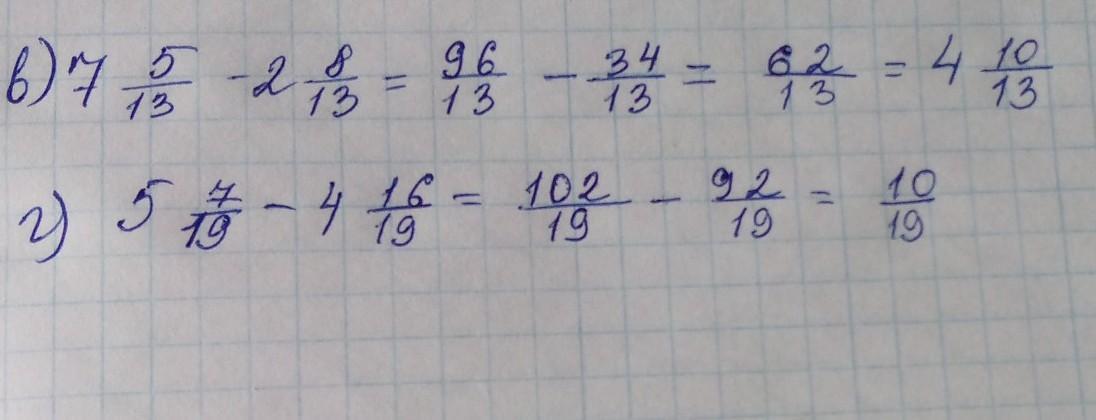 в) 7 5/13 - 2 8/13 = 96/13 - 34/13 = 62/13 = 4 10/13
г) 5 7/19 - 4 16/19 = 102/19 - 92/19 = 10/19